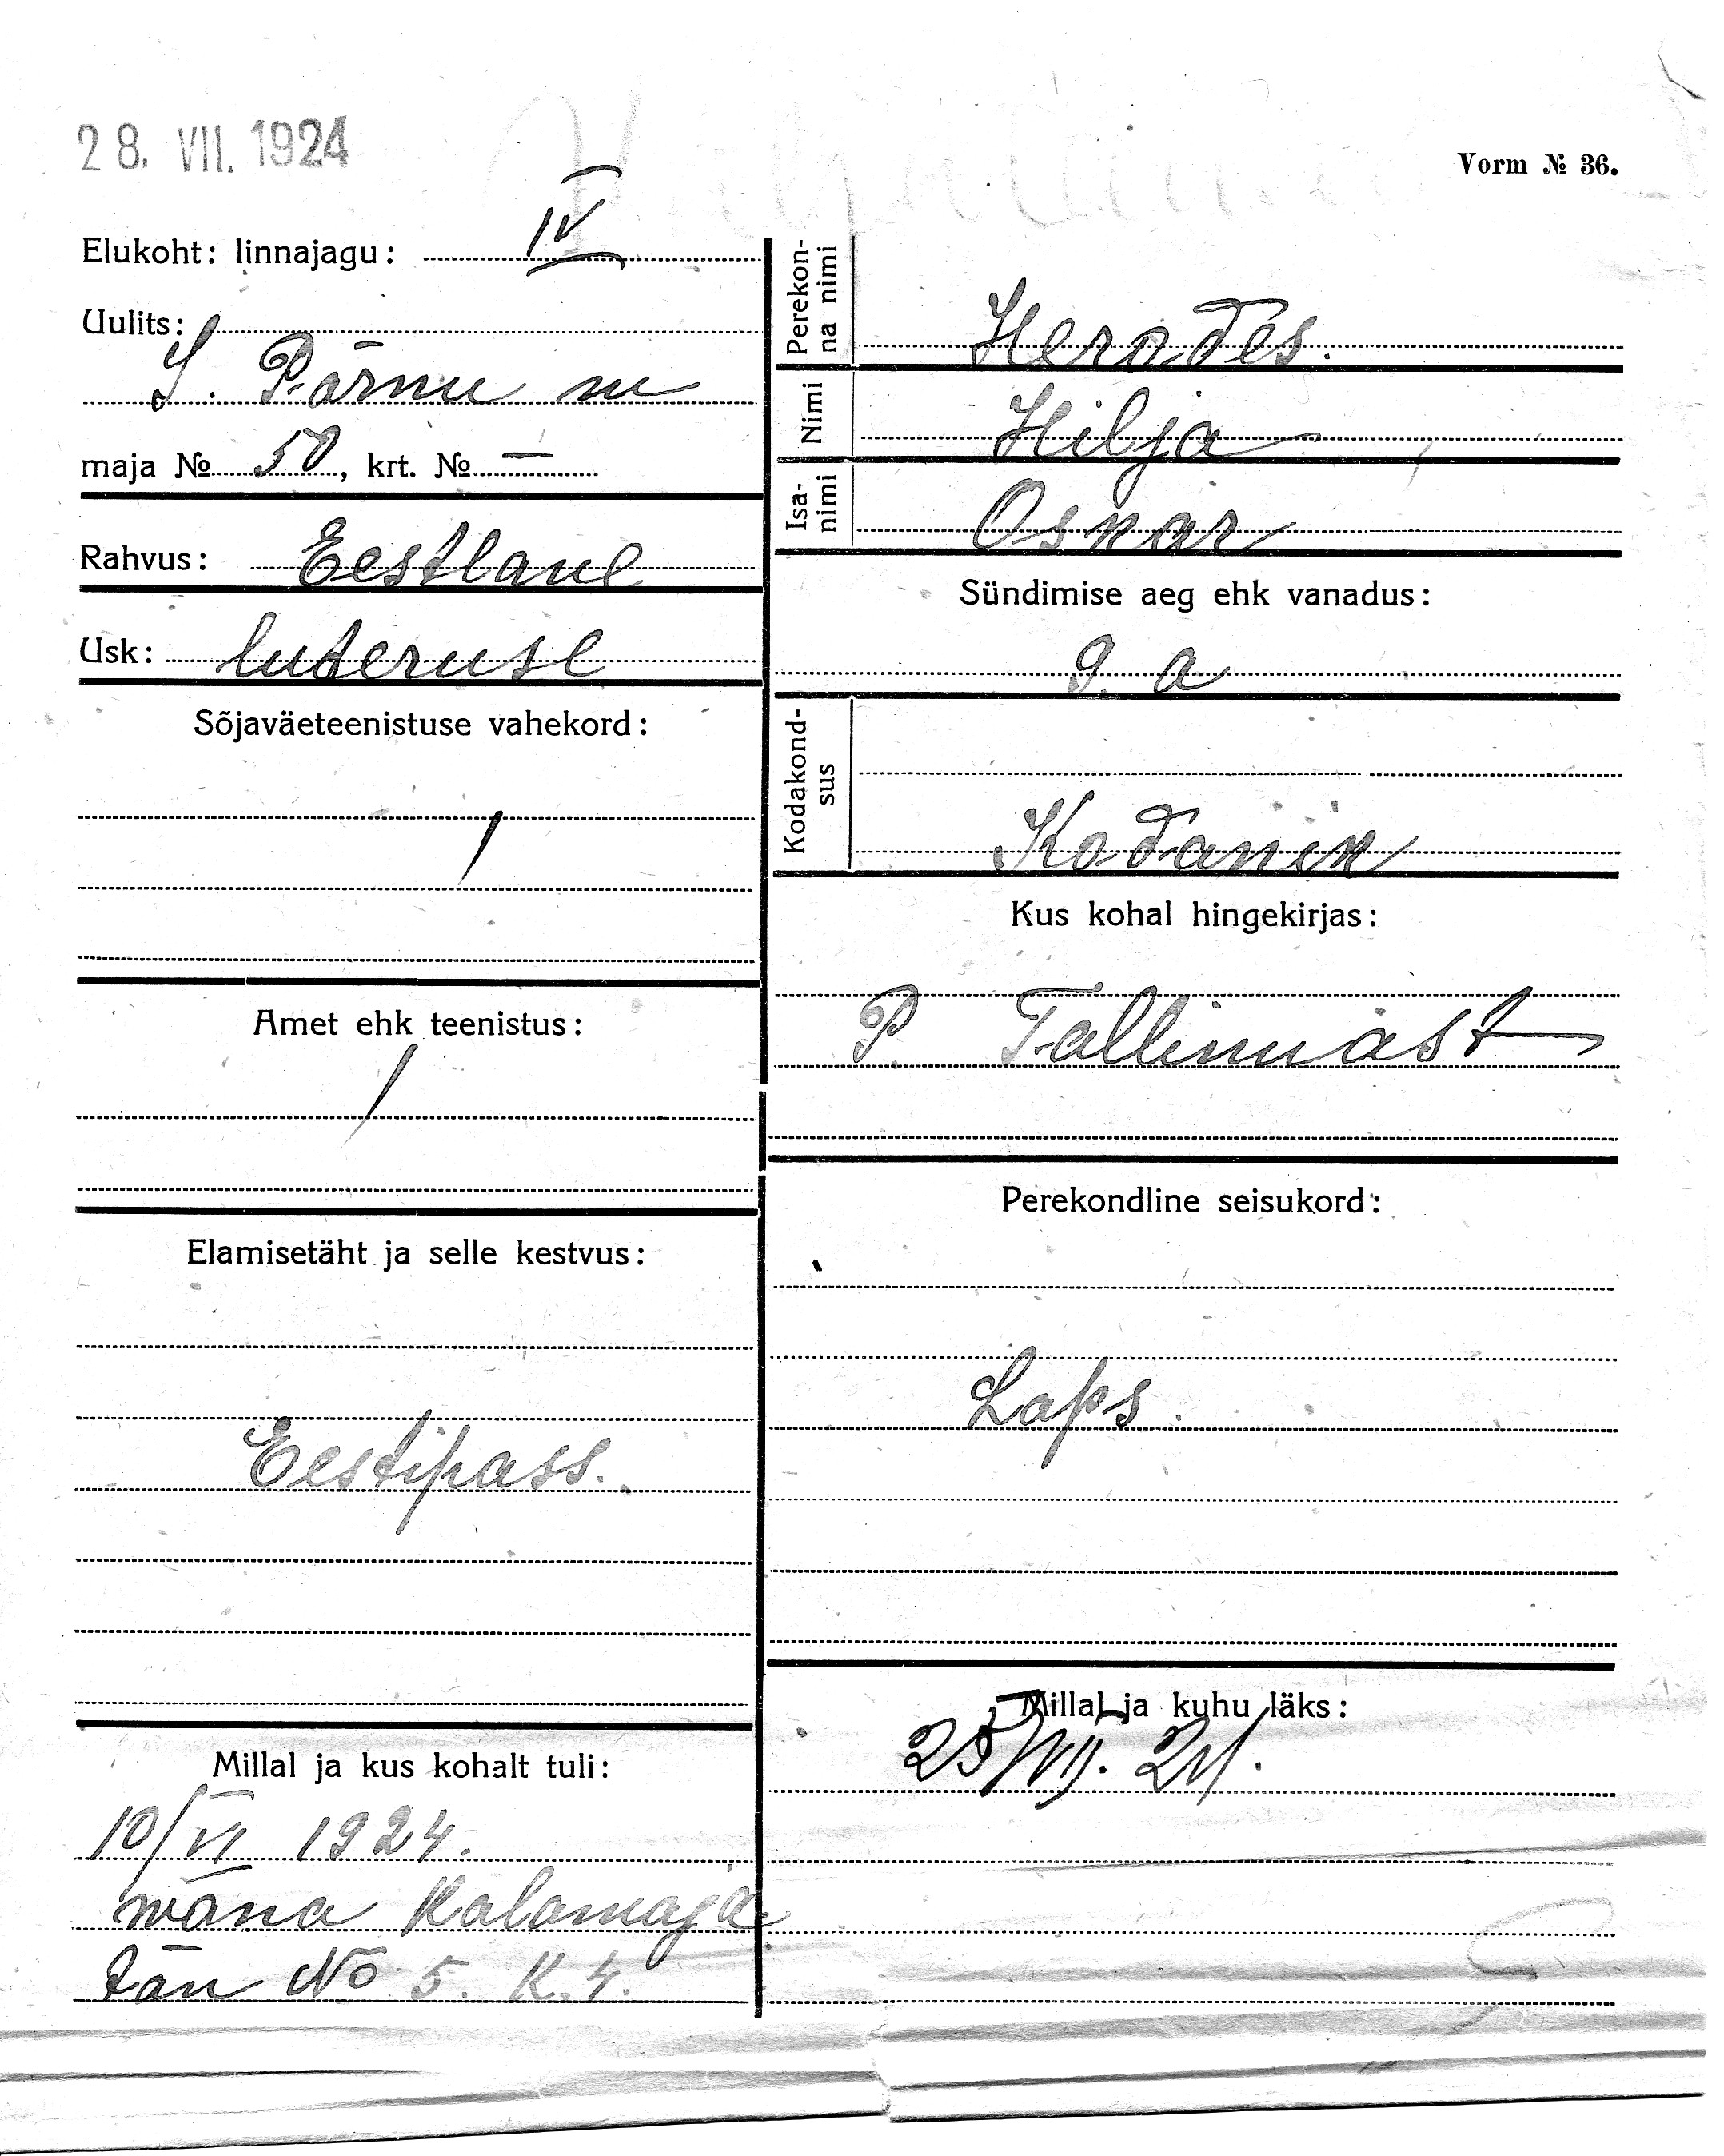 28. VII. 1924
Vorm № 36.
Elukoht: linnajagu: IV
Uulits:
S. Pärnu m
maja № 50, krt. № —
Rahvus: Eestlane
Usk: luteruse
Sõjaväeteenistuse vahekord:
/
Amet ehk teenistus:
/
Elamisetäht ja selle kestvus:
Eestipass.
Millal ja kus kohalt tuli:
10/VI 1924.
wana Kalamaja
tän No 5. K. 4.
Perekonna nimi Herodes.
Nimi Hilja
Isanimi Oskar
Sündimise aeg ehk vanadus:
9. a
Kodakondsus
Kodanik
Kus kohal hingekirjas:
P. Tallinnast
Perekondline seisukord:
Laps.
Millal ja kuhu läks:
25/VII. 24.